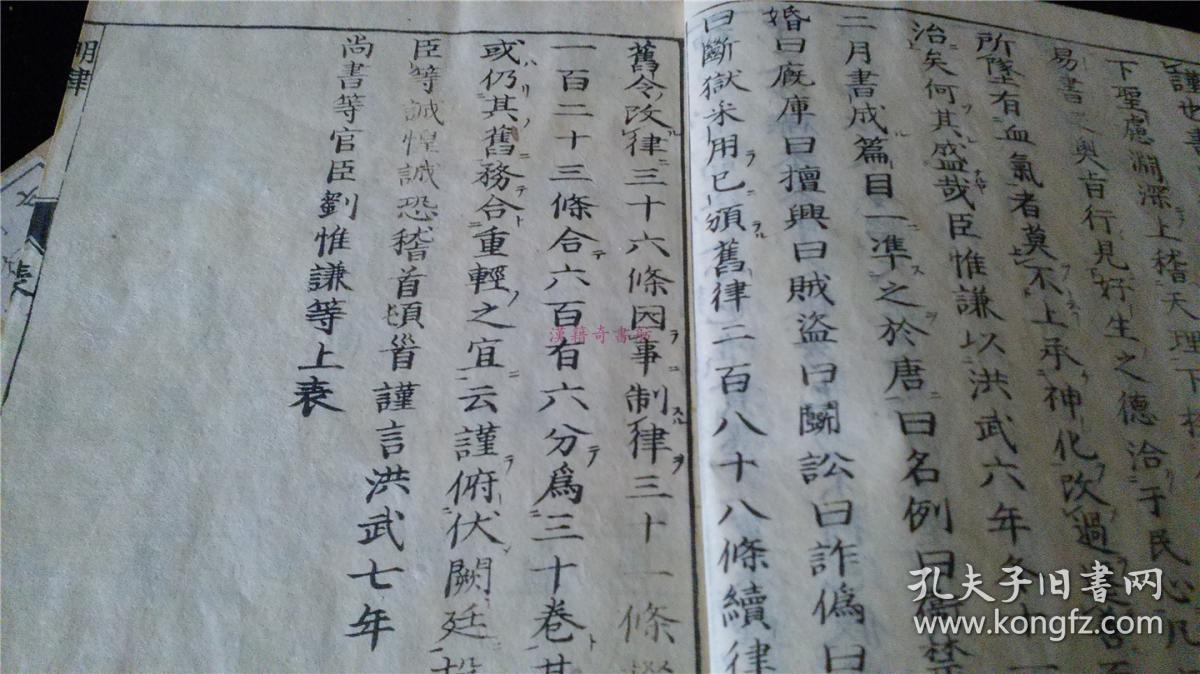 謹世
下聖慮淵深上稽天理下
易書之奧旨行見好生之德洽于民心凡
所墜有血氣者莫不上承神化改過
治矣何其盛哉臣惟謙以洪武六年冬十一
二月書成篇目一準之於唐曰名例曰衛禁
婚曰廐庫曰擅興曰賊盜曰鬭訟曰詐偽曰
曰斷獄采用已頒舊律二百八十八條續律
舊令改律三十六條因事制律三十一條
一百二十三條合六百有六分爲三十卷其
或仍其舊務合重輕之宜云謹俯伏闕廷
臣等誠惶誠恐稽首頓首謹言洪武七年
尚書等官臣劉惟謙等上表
明律
表
漢籍奇書
孔夫子旧书网
www.kongfz.com